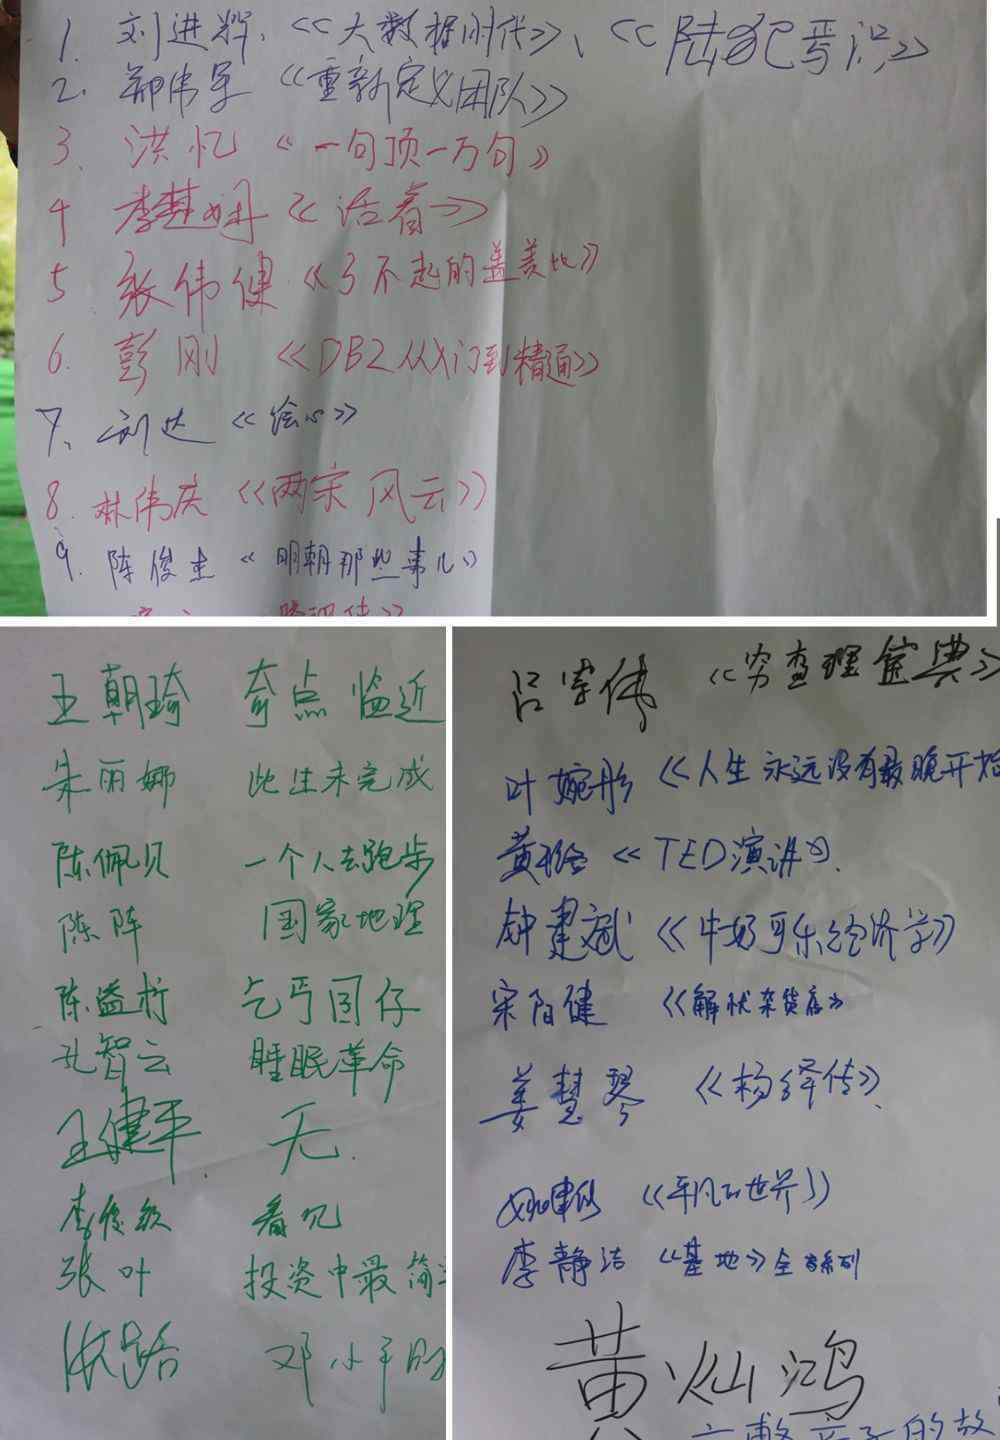 1. 刘进辉、《大数据时代》、《陆犯焉识》
2. 郑伟军 《重新定义团队》
3. 洪忆 《一句顶一万句》
4 李楚娴 《活着》
5 张伟健 《了不起的盖茨比》
6. 彭刚 《DB2从入门到精通》
7、刘达 《绘心》
8. 林伟庆 《两宋风云》
9. 陈俊圭 《明朝那些事儿》
王朝琦 奇点临近
朱丽娜 此生未完成
陈佩贝 一个人去跑步
陈阵 国家地理
陈溢柠 乞丐囝仔
孔智云 睡眠革命
王健平. 无.
李俊毅 看见
张叶 投资中最简
邓小平时
吕宗伟 《穷查理宝典》
叶婉彤 《人生永远没有最晚开始
《TED演讲》.
钟建斌 《牛奶可乐经济学》
宋阳健 《解忧杂货店》
姜慧琴 《杨绛传》.
《平凡的世界》
李静洁 《基地》全系列
黄灿鸿
的故